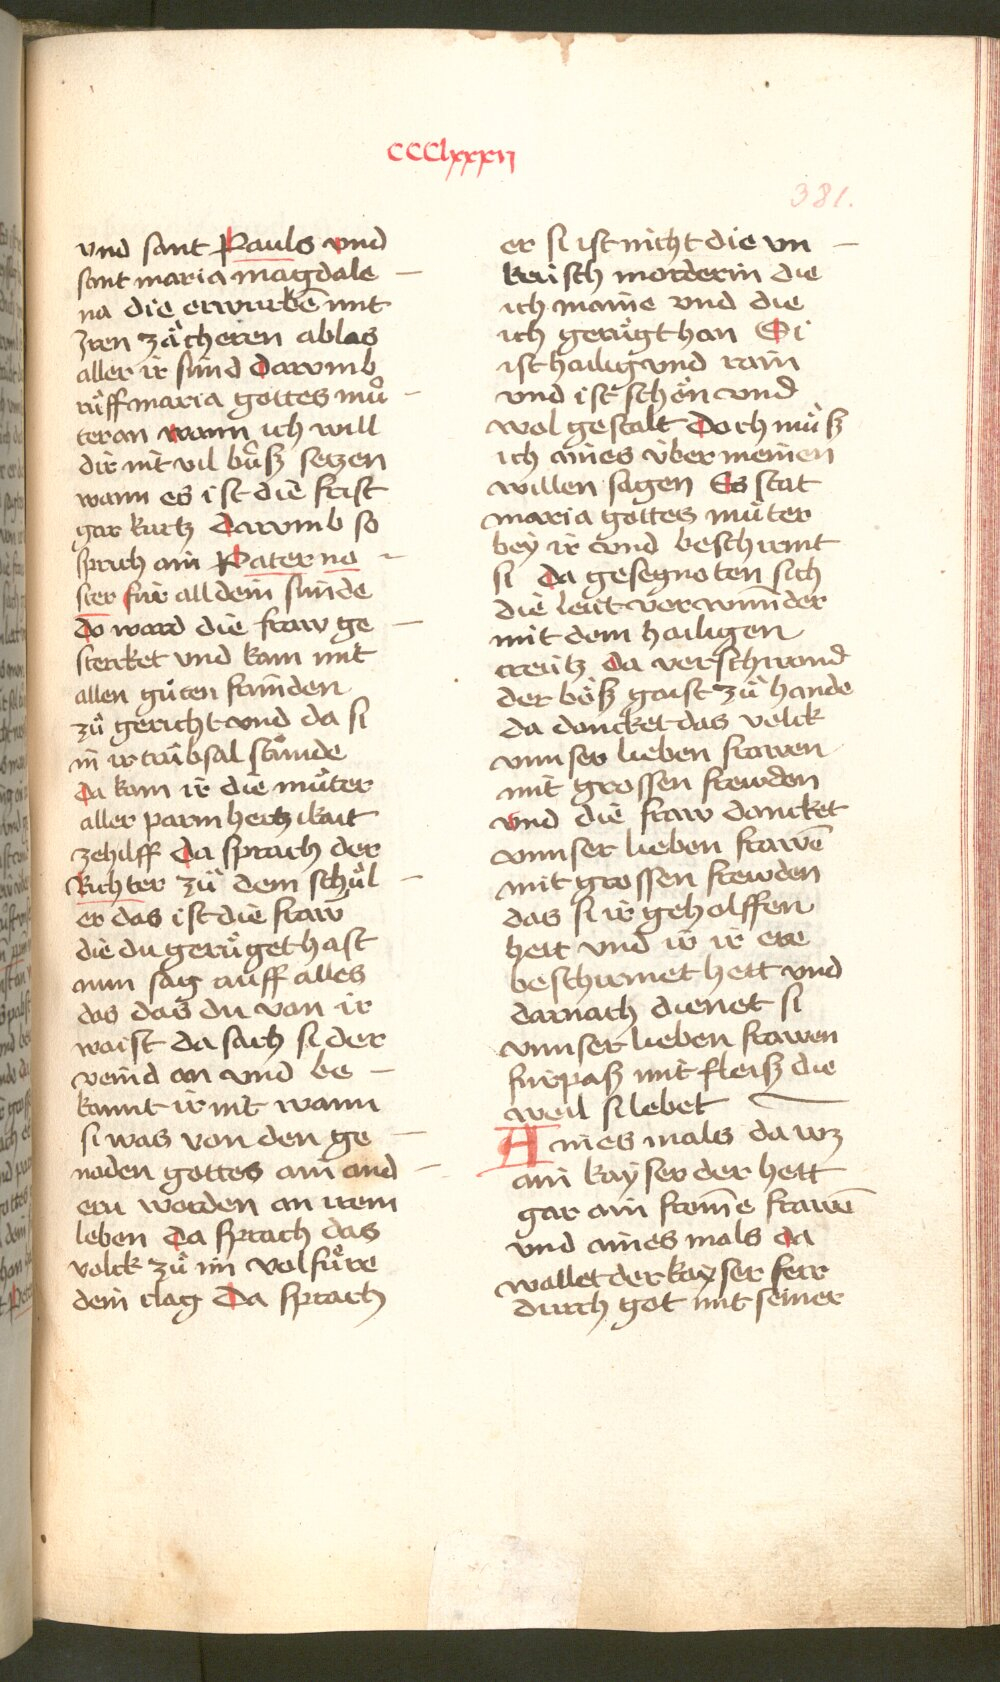 CCClxxxij
381.
vnd sant Pauls vnd
sant maria magdale
na die erwurbē mit
Iren zåcheren ablas
aller ir sünd Darvmb
rüff maria gottes mů
ter an wann ich will
dir nit vil bůß setzen
wann es ist die frist
gar kurtz Darvmb so
sprich ain Pater no
ster für all dein sünde
Do ward die fraw ge
sterket vnd kam mit
allen gůten fråinden
zů gericht vnd da si
in ir trůbsal stůnde
Da kam ir die můter
aller parmhertzikait
ze hilff Da sprach der
Richter zů dem schůl
er das ist die fraw
die du gerůget hast
nun sag auff alles
das das du von ir
waist Da sach si der
veind an vnd be
kannt ir nit wann
si was von den ge
naden gottes ain and
eru worden an irem
leben Da sprach das
volck zů im volfůre
dein clag Da sprach
er si ist nicht die vn
keüsch morderin die
ich maine vnd die
ich gerůgt han Si
ist hailig vnd rain
vnd ist schön vnd
wolgestalt Doch můß
ich aines über meinen
willen sagen Es stat
maria gottes můter
bey ir vnd beschirmt
si Da gesegnoten sich
die leüt verwunder
mit dem hailigen
creütz Da verschwand
der böß gaist zů hande
da dancket das volck
vnnser lieben frawen
mit grossen frewden
vnd die fraw dancket
vnnser lieben frawē
mit grossen frewden
das si ir geholffen
hett vnd ir ir ere
beschirmet hett vnd
darnach dienet si
vnnser lieben frawen
fürpaß mit fleiß die
weil si lebet
Aines mals da wz
ain kayser der hett
gar ain frome frawē
vnd aines mals da
wallet der kayser ferr
durch got mit seiner